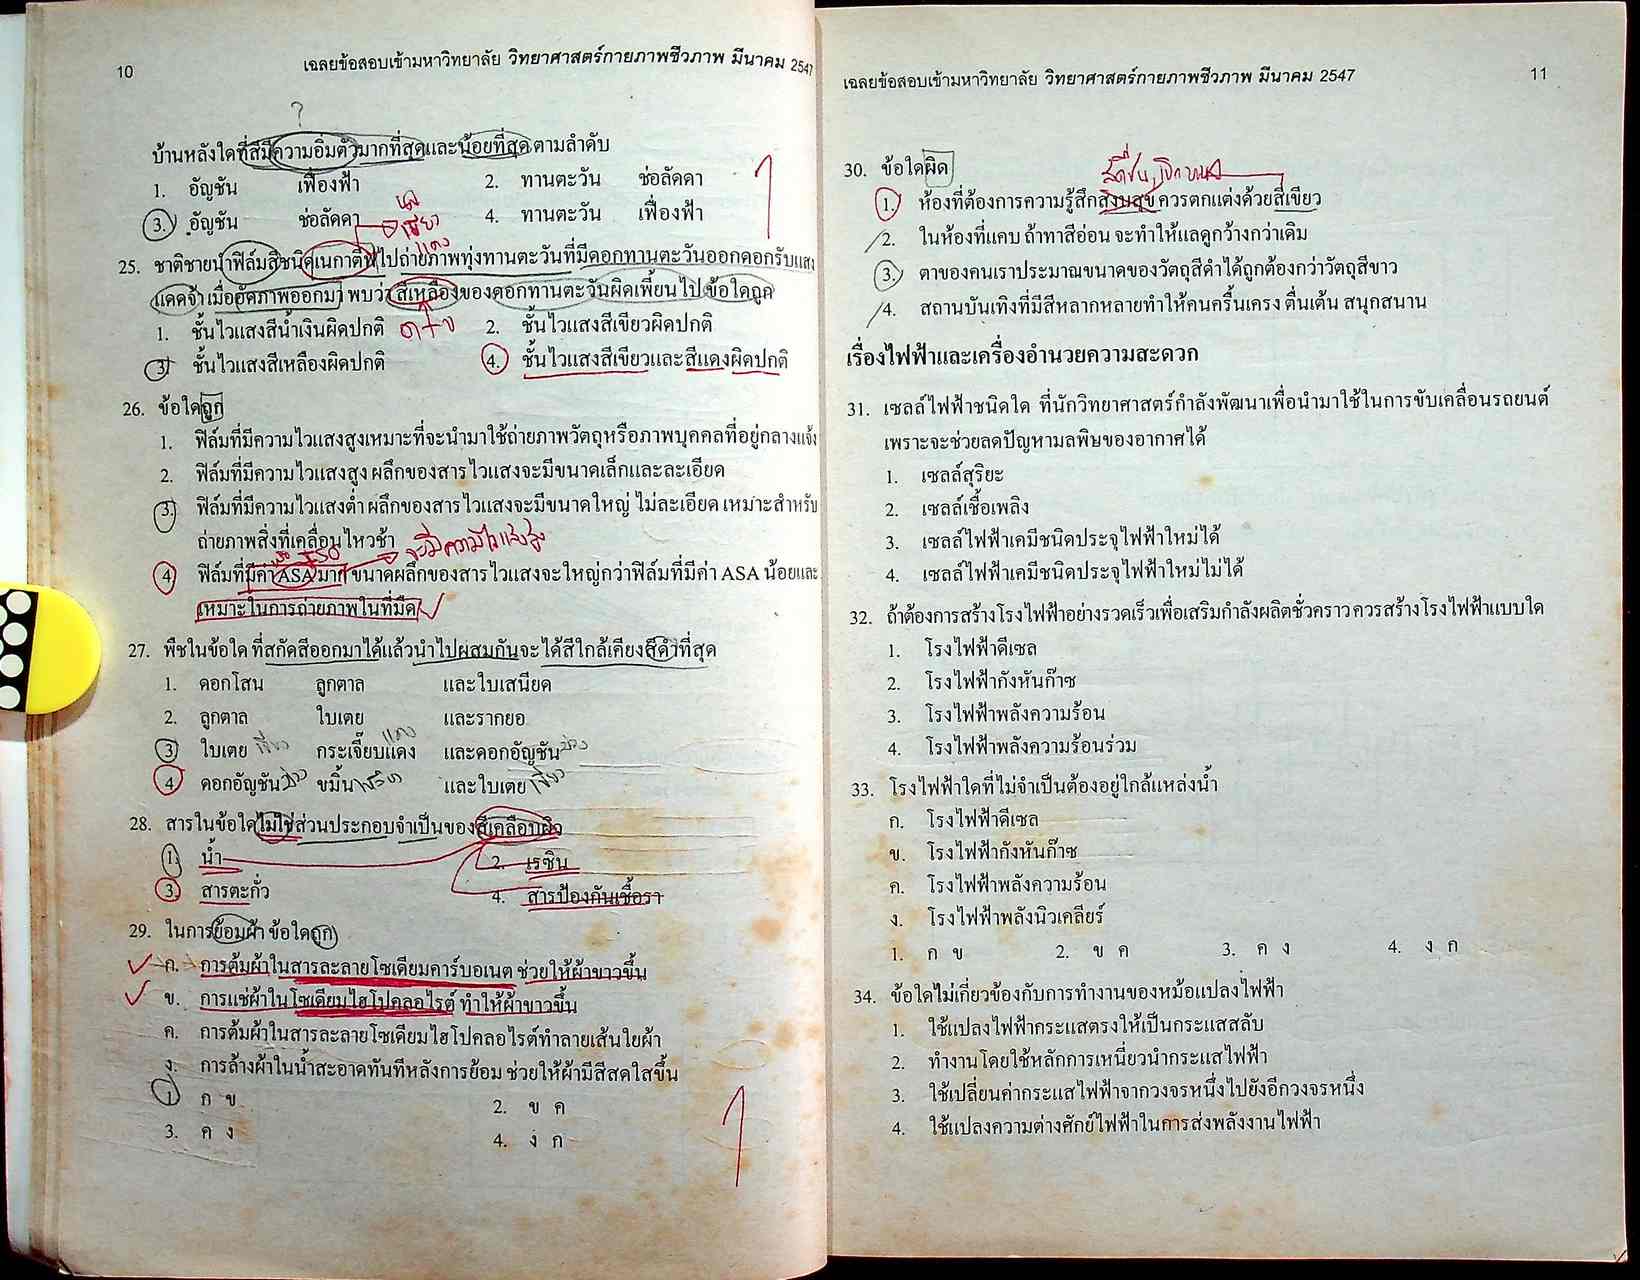 10
เฉลยข้อสอบเข้ามหาวิทยาลัย วิทยาศาสตร์กายภาพชีวภาพ มีนาคม 2547
?
บ้านหลังใดที่สีมีความอิ่มตัวมากที่สุดและน้อยที่สุด ตามลำดับ
1. อัญชัน เฟื่องฟ้า 2. ทานตะวัน ช่อลัดดา
3. อัญชัน ช่อลัดดา 4. ทานตะวัน เฟื่องฟ้า
เขียว
แดง
25. ชาติชายนำฟิล์มสีชนิดเนกาตีฟไปถ่ายภาพทุ่งทานตะวันที่มีดอกทานตะวันออกดอกรับแสง
แดดจ้า เมื่ออัดภาพออกมา พบว่า สีเหลืองของดอกทานตะวันผิดเพี้ยนไป ข้อใดถูก
1. ชั้นไวแสงสีน้ำเงินผิดปกติ 2. ชั้นไวแสงสีเขียวผิดปกติ
3. ชั้นไวแสงสีเหลืองผิดปกติ 4. ชั้นไวแสงสีเขียวและสีแดงผิดปกติ
26. ข้อใดถูก
1. ฟิล์มที่มีความไวแสงสูงเหมาะที่จะนำมาใช้ถ่ายภาพวัตถุหรือภาพบุคคลที่อยู่กลางแจ้ง
2. ฟิล์มที่มีความไวแสงสูง ผลึกของสารไวแสงจะมีขนาดเล็กและละเอียด
3. ฟิล์มที่มีความไวแสงต่ำ ผลึกของสารไวแสงจะมีขนาดใหญ่ ไม่ละเอียด เหมาะสำหรับ
ถ่ายภาพสิ่งที่เคลื่อนไหวช้า
ISO จะมีความไวแสงสูง
4. ฟิล์มที่มีค่า ASA มาก ขนาดผลึกของสารไวแสงจะใหญ่กว่าฟิล์มที่มีค่า ASA น้อยและ
เหมาะในการถ่ายภาพในที่มืด
27. พืชในข้อใด ที่สกัดสีออกมาได้แล้วนำไปผสมกันจะได้สีใกล้เคียงสีดำที่สุด
1. ดอกโสน ลูกตาล และใบเสนียด
2. ลูกตาล ใบเตย และรากยอ
3. ใบเตย เขียว กระเจี๊ยบแดง แดง และดอกอัญชัน ม่วง
4. ดอกอัญชัน ม่วง ขมิ้น เหลือง และใบเตย เขียว
28. สารในข้อใดไม่ใช่ส่วนประกอบจำเป็นของสีเคลือบผิว
1. น้ำ 2. เรซิน
3. สารตะกั่ว 4. สารป้องกันเชื้อรา
29. ในการย้อมผ้า ข้อใดถูก
ก. การต้มผ้าในสารละลายโซเดียมคาร์บอเนต ช่วยให้ผ้าขาวขึ้น
ข. การแช่ผ้าในโซเดียมไฮโปคลอไรต์ ทำให้ผ้าขาวขึ้น
ค. การต้มผ้าในสารละลายโซเดียมไฮโปคลอไรต์ทำลายเส้นใยผ้า
ง. การล้างผ้าในน้ำสะอาดทันทีหลังการย้อม ช่วยให้ผ้ามีสีสดใสขึ้น
1. ก ข 2. ข ค
3. ค ง 4. ง ก
เฉลยข้อสอบเข้ามหาวิทยาลัย วิทยาศาสตร์กายภาพชีวภาพ มีนาคม 2547
11
30. ข้อใดผิด
1. ห้องที่ต้องการความรู้สึกสงบสุข ควรตกแต่งด้วยสีเขียว
2. ในห้องที่แคบ ถ้าทาสีอ่อน จะทำให้แลดูกว้างกว่าเดิม
3. ตาของคนเราประมาณขนาดของวัตถุสีดำได้ถูกต้องกว่าวัตถุสีขาว
4. สถานบันเทิงที่มีสีหลากหลายทำให้คนครื้นเครง ตื่นเต้น สนุกสนาน
เรื่องไฟฟ้าและเครื่องอำนวยความสะดวก
31. เซลล์ไฟฟ้าชนิดใด ที่นักวิทยาศาสตร์กำลังพัฒนาเพื่อนำมาใช้ในการขับเคลื่อนรถยนต์
เพราะจะช่วยลดปัญหามลพิษของอากาศได้
1. เซลล์สุริยะ
2. เซลล์เชื้อเพลิง
3. เซลล์ไฟฟ้าเคมีชนิดประจุไฟฟ้าใหม่ได้
4. เซลล์ไฟฟ้าเคมีชนิดประจุไฟฟ้าใหม่ไม่ได้
32. ถ้าต้องการสร้างโรงไฟฟ้าอย่างรวดเร็วเพื่อเสริมกำลังผลิตชั่วคราว ควรสร้างโรงไฟฟ้าแบบใด
1. โรงไฟฟ้าดีเซล
2. โรงไฟฟ้ากังหันก๊าซ
3. โรงไฟฟ้าพลังความร้อน
4. โรงไฟฟ้าพลังความร้อนร่วม
33. โรงไฟฟ้าใดที่ไม่จำเป็นต้องอยู่ใกล้แหล่งน้ำ
ก. โรงไฟฟ้าดีเซล
ข. โรงไฟฟ้ากังหันก๊าซ
ค. โรงไฟฟ้าพลังความร้อน
ง. โรงไฟฟ้าพลังนิวเคลียร์
1. ก ข 2. ข ค 3. ค ง 4. ง ก
34. ข้อใดไม่เกี่ยวข้องกับการทำงานของหม้อแปลงไฟฟ้า
1. ใช้แปลงไฟฟ้ากระแสตรงให้เป็นกระแสสลับ
2. ทำงานโดยใช้หลักการเหนี่ยวนำกระแสไฟฟ้า
3. ใช้เปลี่ยนค่ากระแสไฟฟ้าจากวงจรหนึ่งไปยังอีกวงจรหนึ่ง
4. ใช้แปลงความต่างศักย์ไฟฟ้าในการส่งพลังงานไฟฟ้า